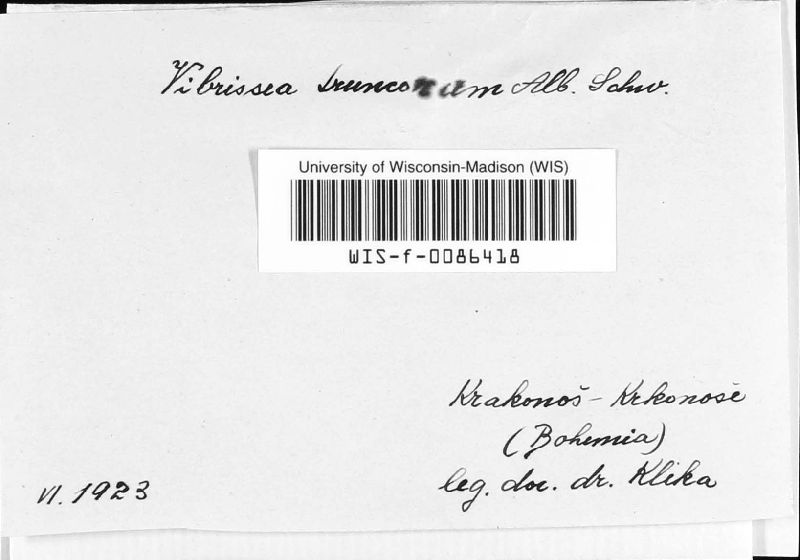 Vibrissea truncorum Alb. Schw.
University of Wisconsin-Madison (WIS)
WIS-f-0086418
Krakonoš - Krkonoše
(Bohemia)
leg. doc. dr. Klika
VI. 1923